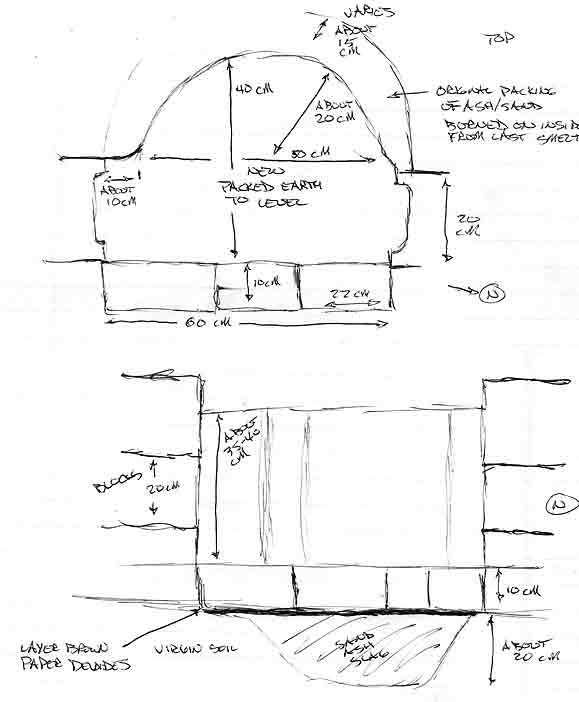 VARIES
ABOUT
15
CM
TOP
40 CM
ABOUT
20 CM
ORIGINAL PACKING
OF ASH/SAND
BURNED ON INSID
FROM LAST SMELT
30 CM
NEW
PACKED EARTH
TO LEVEL
ABOUT
10 CM
20
CM
10 CM
22 CM
N
60 CM
ABOUT
35-40
CM
BLOCKS
20 CM
N
10 CM
LAYER BROWN
PAPER
VIRGIN SOIL
SAND
ASH
SLAG
ABOUT
20 CM